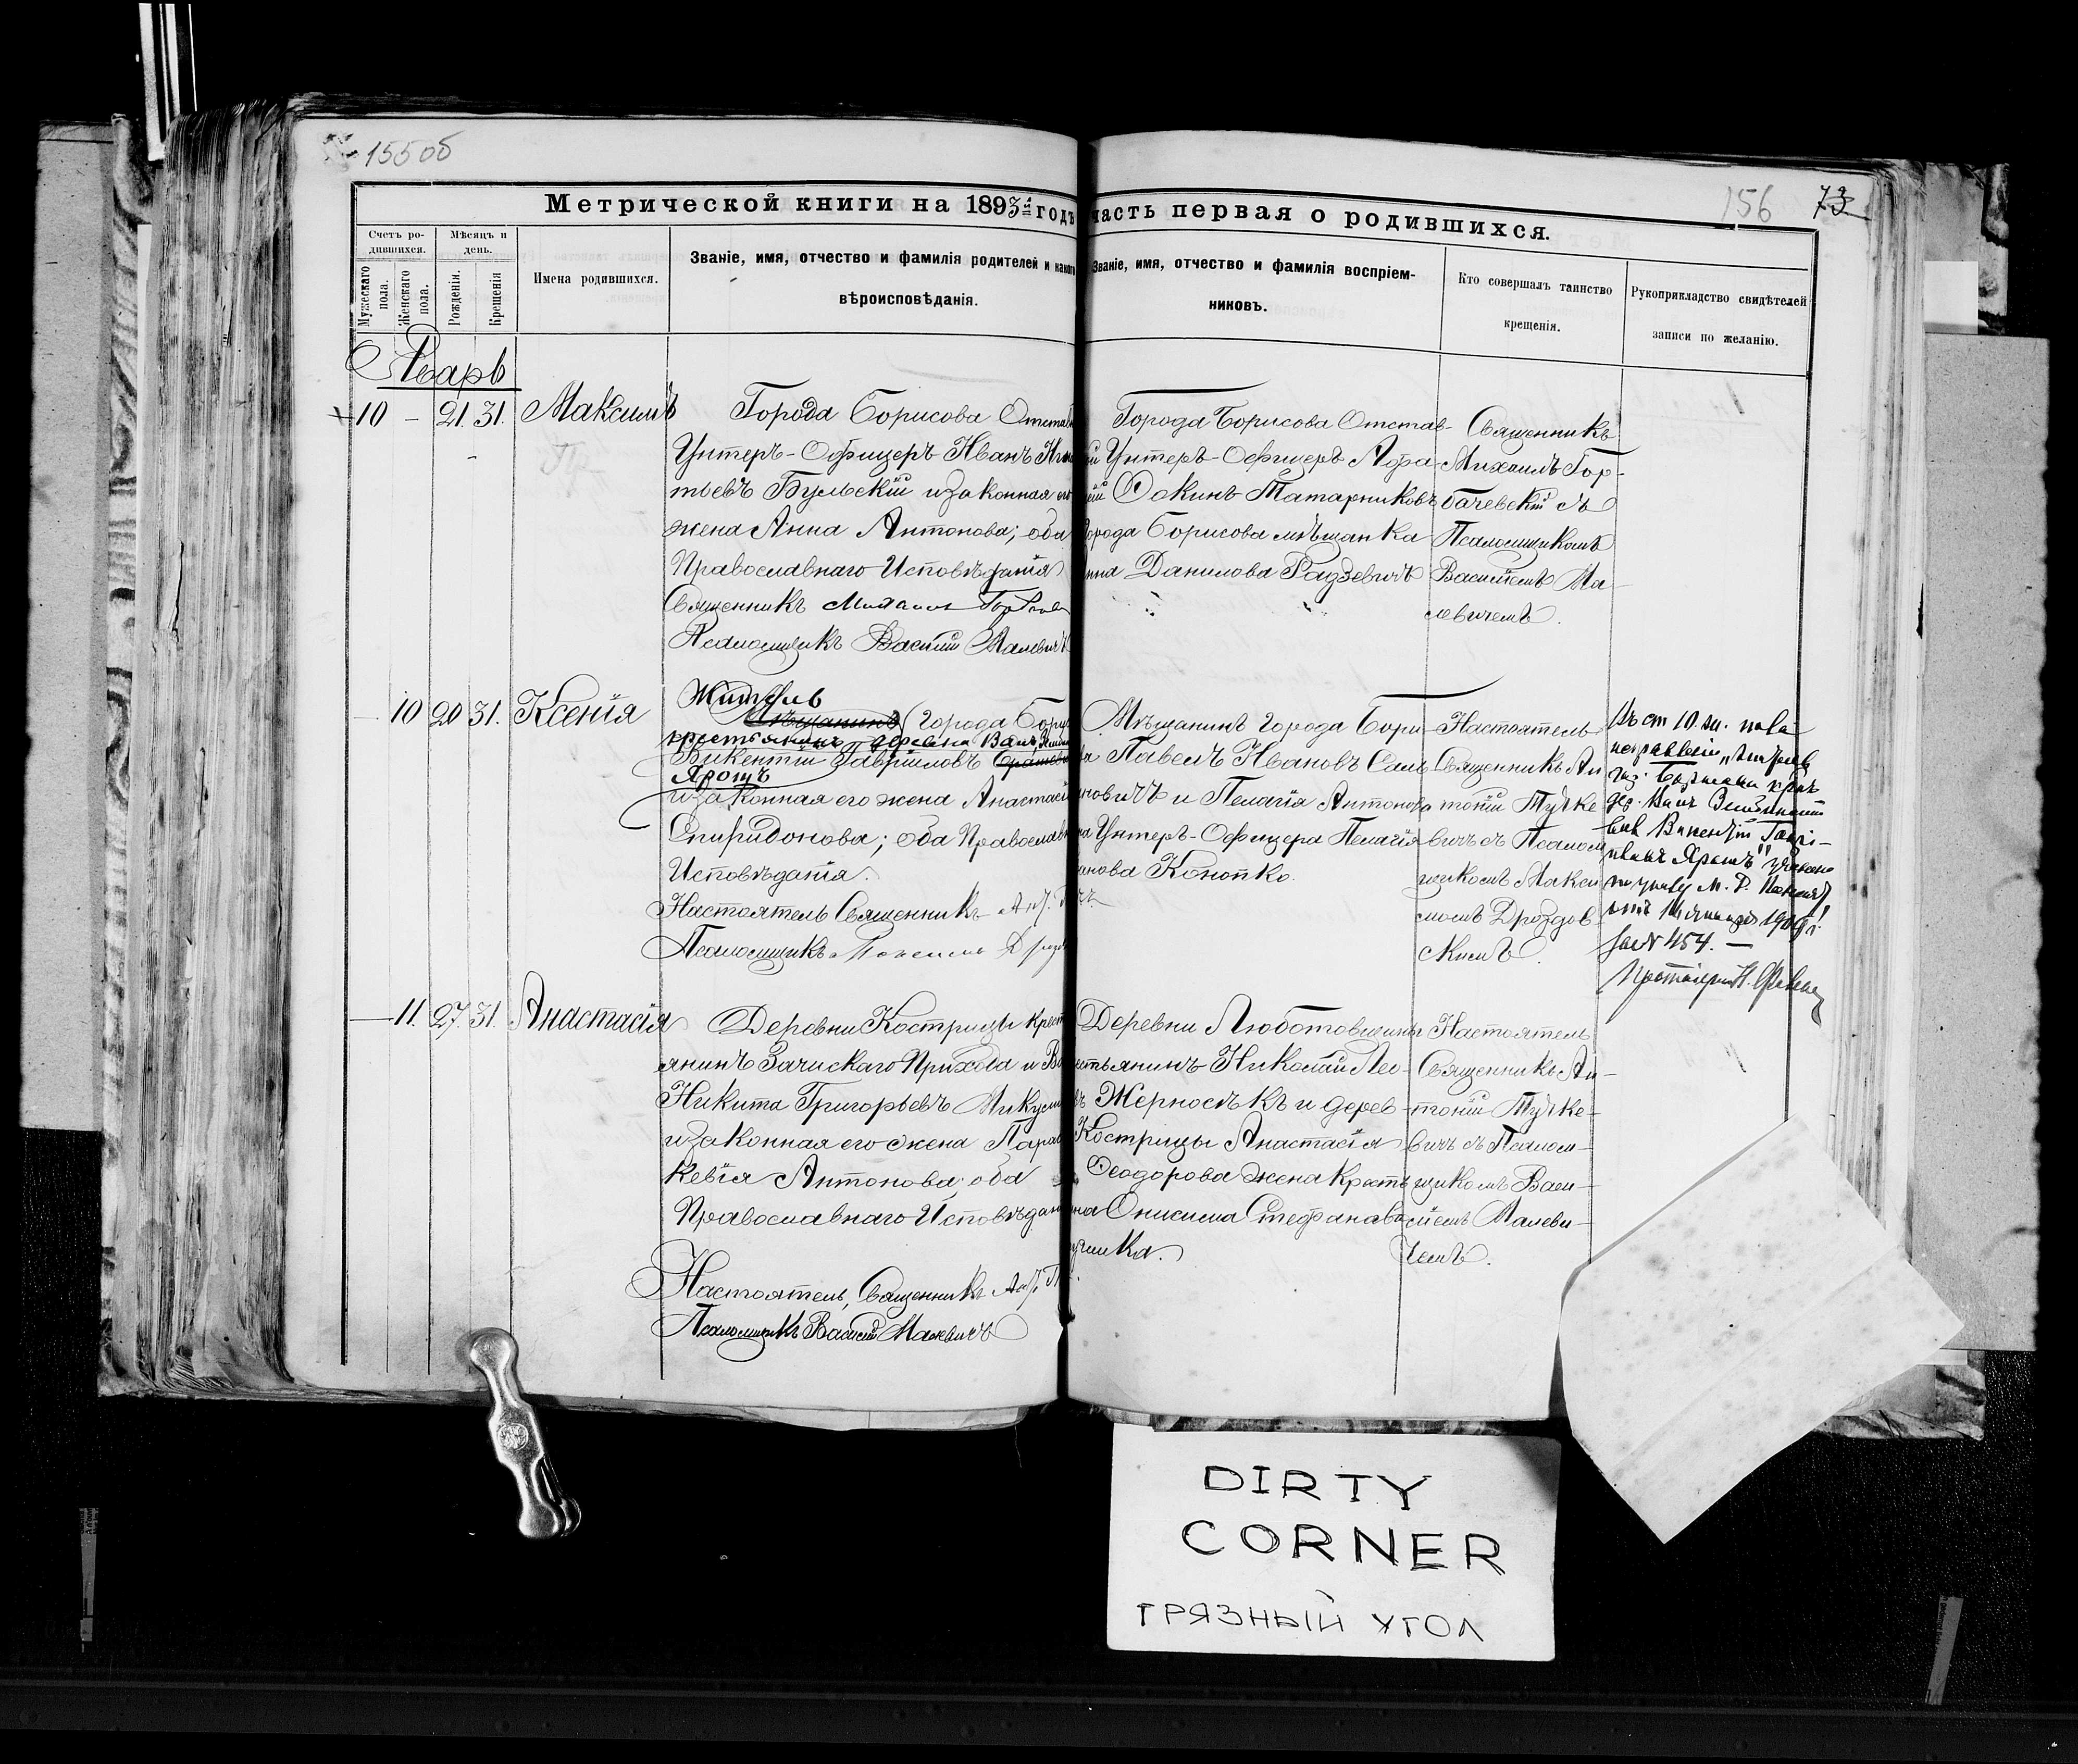 155 об
156 73
Метрической книги на 1893й годъ часть первая о родившихся.
Счетъ ро-
дившихся.
Мужескаго пола.
Женскаго пола.
Мѣсяцъ и
день.
Рожденія.
Крещенія
Имена родившихся.
Званіе, имя, отчество и фамилія родителей и какого
вѣроисповѣданія.
Званіе, имя, отчество и фамилія воспріем-
никовъ.
Кто совершалъ таинство
крещенія.
Рукоприкладство свидѣтелей
записи по желанію.
Январь
10 - 21. 31. Максимъ
Города Борисова Отстав
Унтеръ-Офицеръ Иванъ
тьевъ Бульскій и законная его
жена Анна Антонова; оба
Православнаго Исповѣданія
Священникъ Михаилъ
Псаломщикъ Василій Малевичъ
Города Борисова Отстав-
й Унтеръ-Офицеръ Афа-
сій Осжинъ Татарниковъ
орода Борисова мѣщанка
нна Данилова Радзевичъ
Священникъ
Михаилъ Гор-
бачевскій съ
Псаломщикомъ
Василіемъ Ма-
левичемъ.
10 20 31. Ксенія
Житель
Мѣщанинъ Города Бори
крестьянинъ деревни
Викентій Гавріиловъ
Ярошъ
и законная его жена Анастасія
Спиридонова; оба Православн
Исповѣданія.
Настоятель Священникъ Ант.
Псаломщикъ Максимъ Дрозд
Мѣщанинъ Города Бори-
Павелъ Ивановъ Саль
новичъ и Пелагія Антонова
на Унтеръ-Офицера Пелагія
анова Конопко.
Настоятель
Священникъ Ан
тоній Тучке
вичъ съ Псалом
щикомъ Макси
момъ Дроздов-
скимъ.
Въ ст 10. ж. пола
исправленіе „Житель
гор. Борисова кр-нъ
дер.
Викентій Гаврі-
иловъ Ярошъ" учинено
по указу М. Д. Консист.
за № 454. —
Протоіерей Н.
11. 27. 31. Анастасія
Деревни Кострицы крест
янинъ Зачискаго Прихода и
Никита Григорьевъ
и законная его жена Парас
кевія Антонова; оба
Православнаго Исповѣдан
Настоятель, Священникъ Ант.
Псаломщикъ Василій Малевичъ
Деревни Люботовщины
естьянинъ Николай Лео-
въ Жерносѣкъ и дерев-
Кострицы Анастасія
Ѳеодорова жена крестья
на Онисима Стефанова
ушка.
Настоятель
Священникъ Ан-
тоній Тучке-
вичъ съ Псалом-
щикомъ Васи-
ліемъ Малеви-
чемъ.
DIRTY
CORNER
ГРЯЗНЫЙ УГОЛ